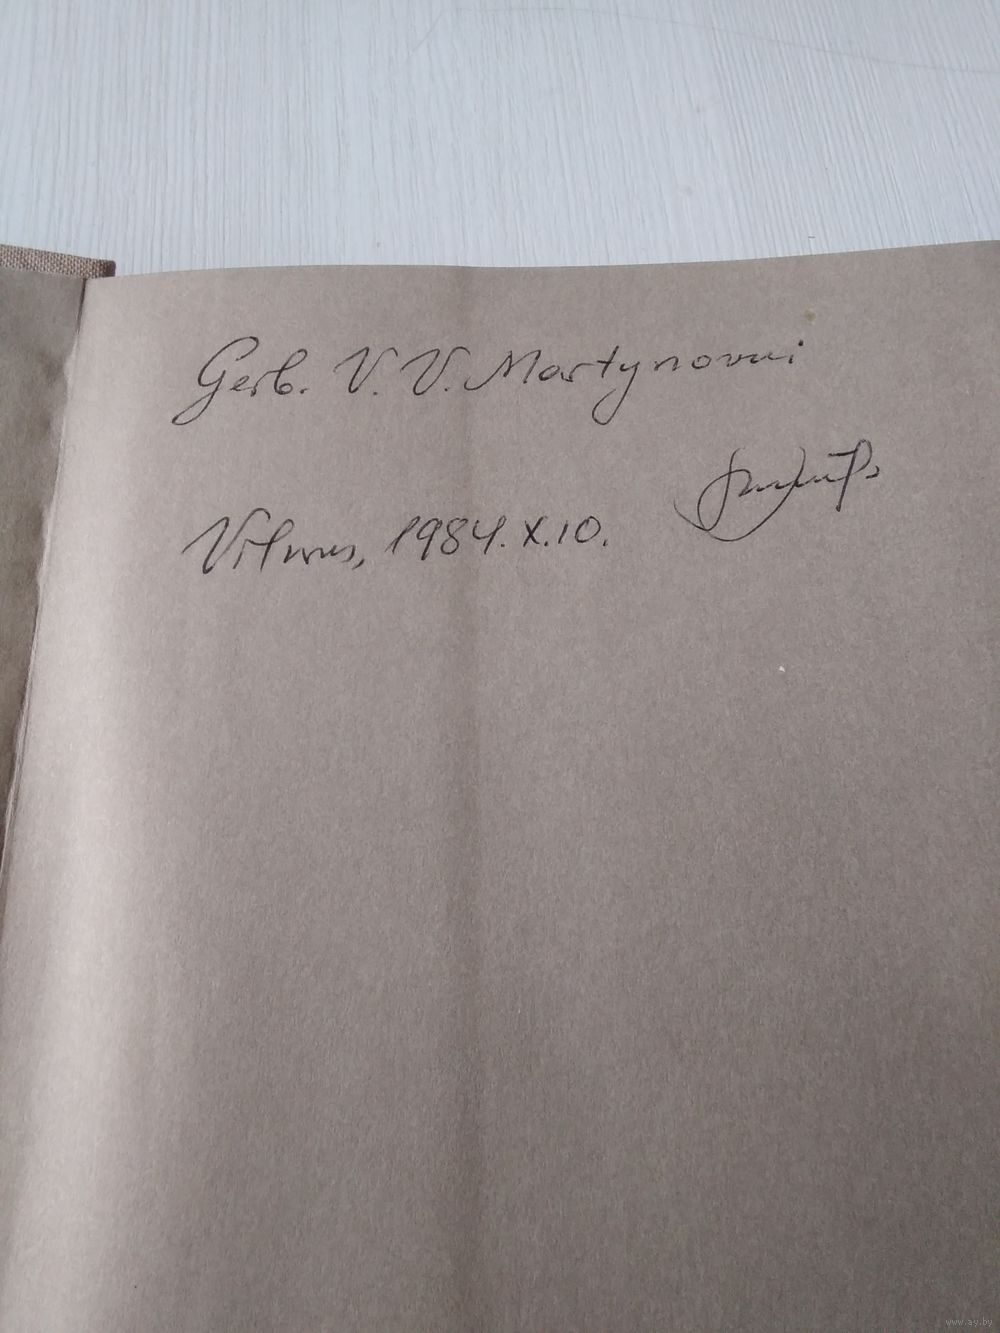 Gerb. V. V. Martynovui
Vilnius, 1984.X.10.
www.ay.by